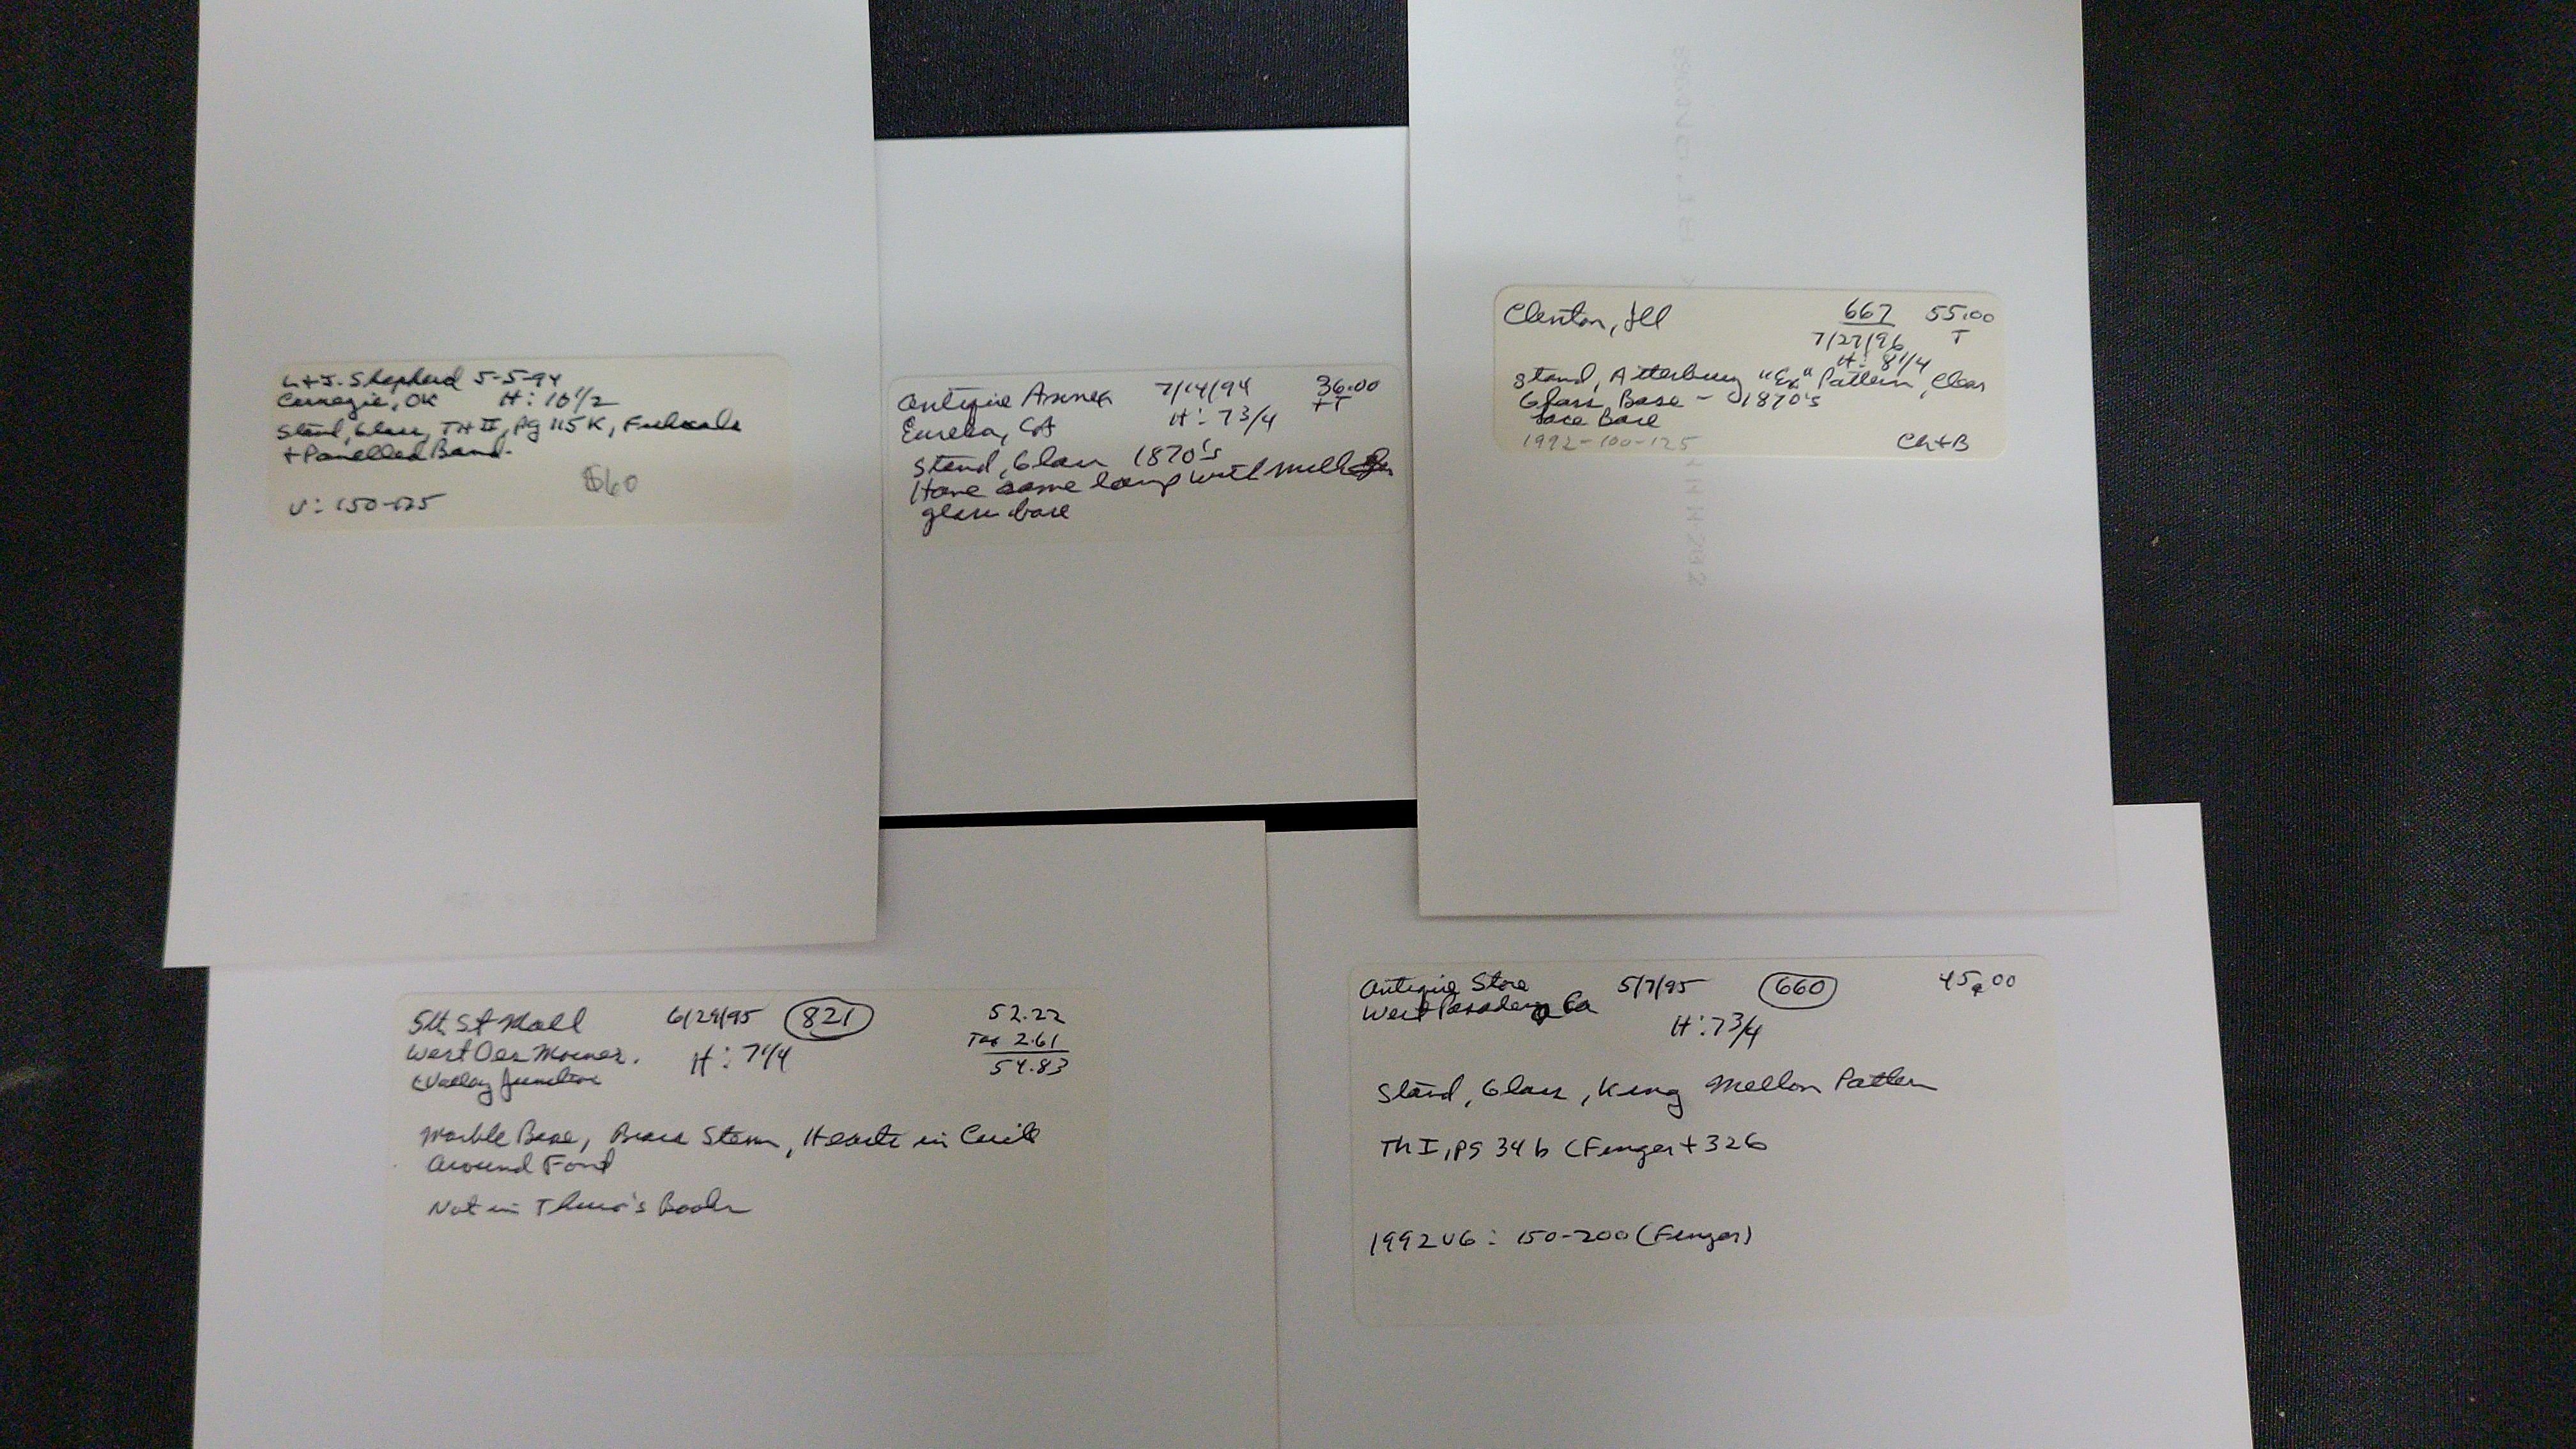 L+J. Shepherd 5-5-94
Carnegie, OK H: 10 1/2
Stand, Glass, TH II, Pg 115 K,
+ Panelled Band.
$60
V: 150-175
Antique Annex 7/14/94 36.00
Eureka, CA H: 7 3/4 +T
Stand, Glass 1870's
Have same lamp with milk
glass base
Clinton, Ill 667 55.00
7/27/96 T
H: 8 1/4
Stand, Atterbury "Ex" Pattern, Clear
Glass Base - 1870's
Lace Base
1992-100-125 Ch+B
5th St Mall 6/29/95 821 52.22
West Des Moines. H: 7 1/4 Tax 2.61
Valley Junction 54.83
Marble Base, Brass Stem, Hearts in
Around Font
Not in Thuro's Books
Antique Store 5/7/95 660 45.00
West Pasadena Ca
H: 7 3/4
Stand, Glass, King Mellon Pattern
Th I, pg 34 b (Finger + 326
1992 VG: 150-200 (Finger)